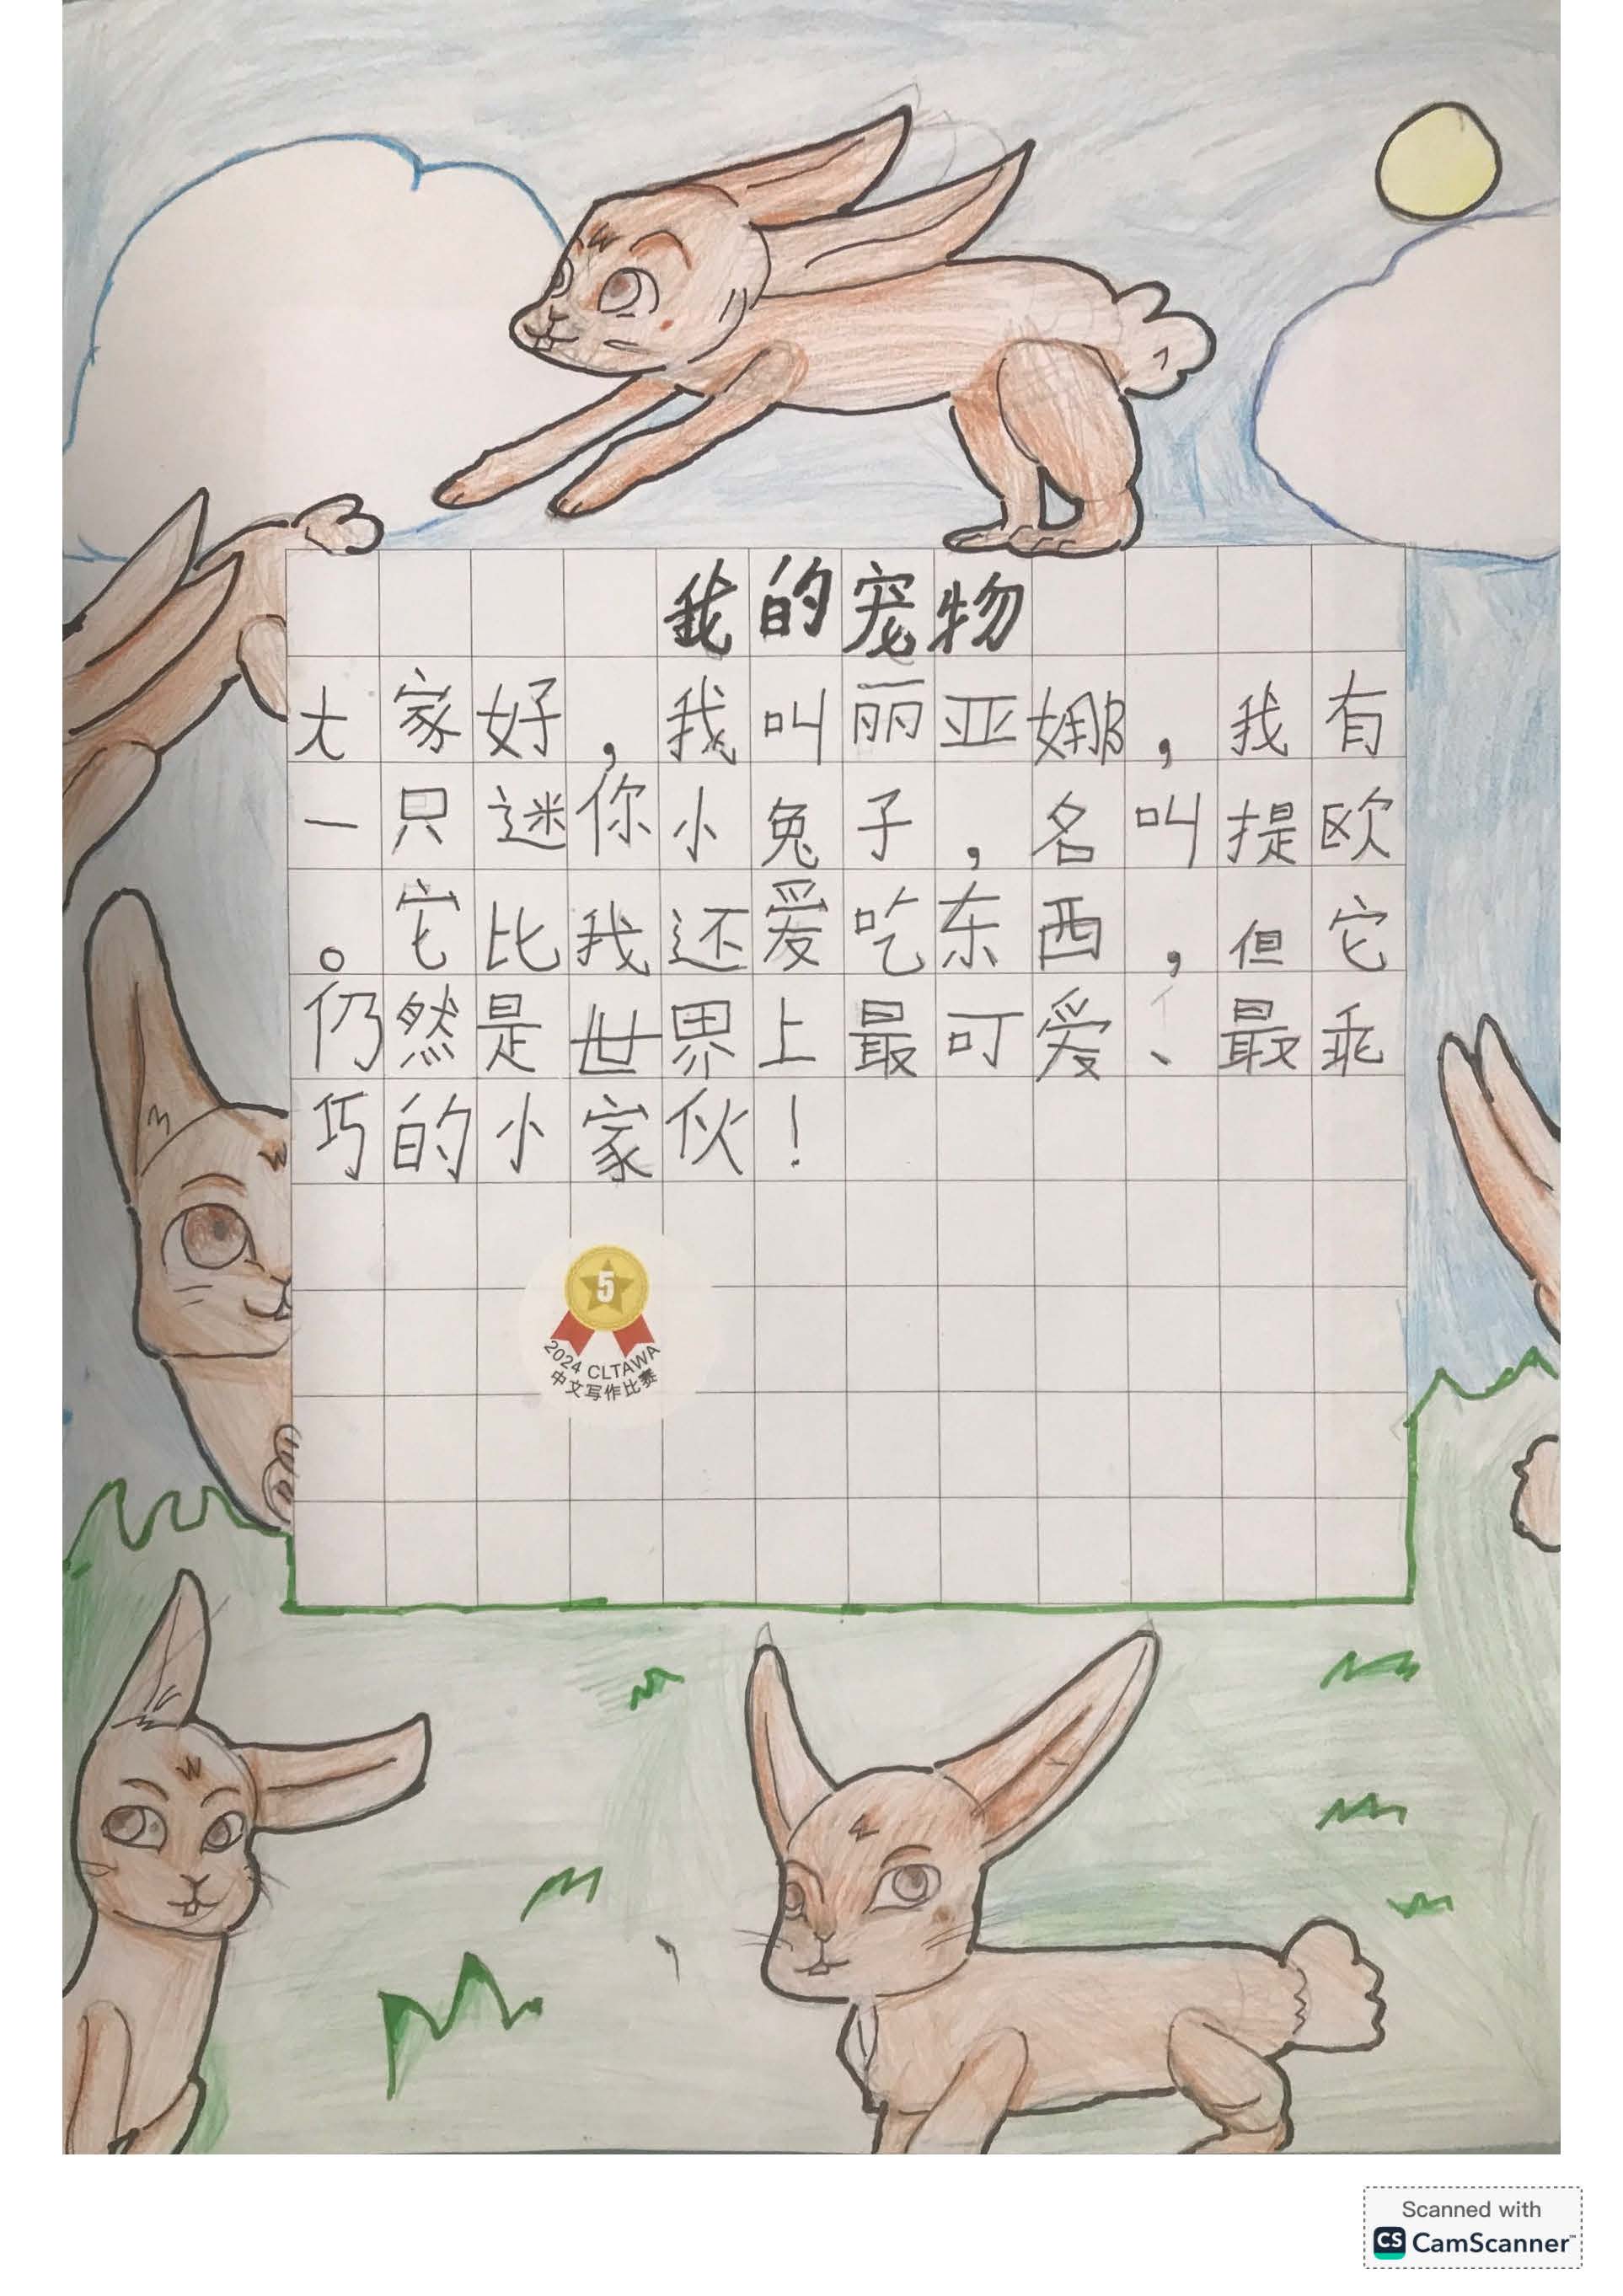 我的宠物
大家好，我叫丽亚娜，我有
一只迷你小兔子，名叫提欧
。它比我还爱吃东西，但它
仍然是世界上最可爱、最乖
巧的小家伙！
5
2024 CLTAWA
中文写作比赛
Scanned with
CS CamScanner™